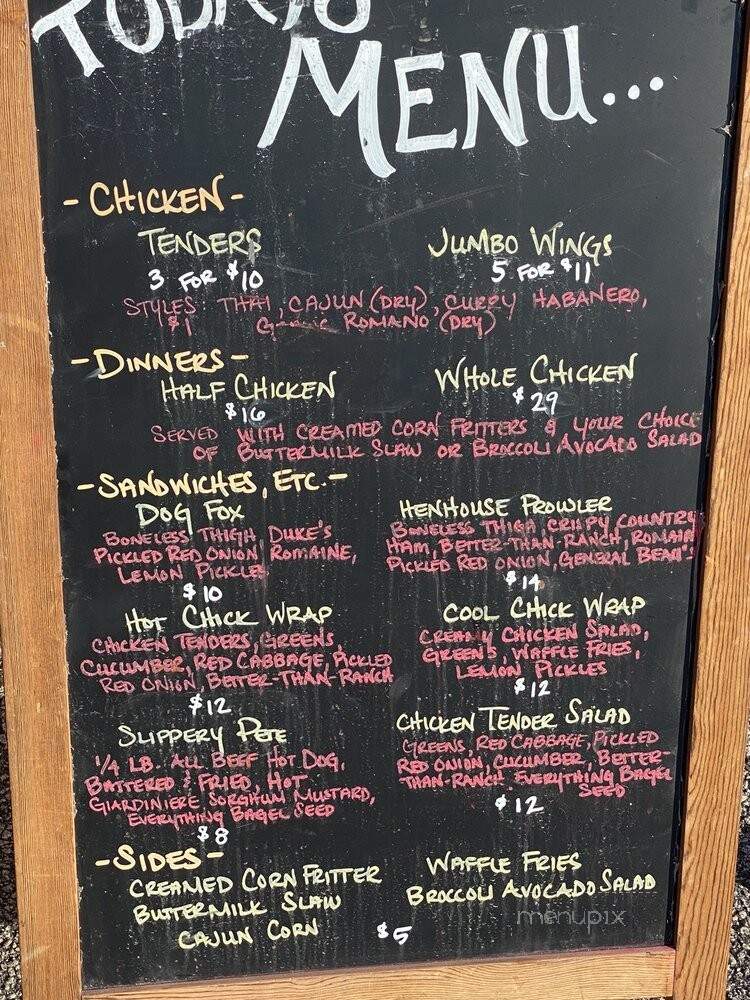 TODAY'S
MENU...
- CHICKEN -
TENDERS
3 FOR $10
JUMBO WINGS
5 FOR $11
STYLES: THAI, CAJUN (DRY), CURRY HABANERO,
$1 ROMANO (DRY)
- DINNERS -
HALF CHICKEN
$16
WHOLE CHICKEN
$29
SERVED WITH CREAMED CORN FRITTERS & YOUR CHOICE
OF BUTTERMILK SLAW OR BROCCOLI AVOCADO SALAD
- SANDWICHES, ETC. -
DOG FOX
BONELESS THIGH DUKE'S
PICKLED RED ONION, ROMAINE,
LEMON PICKLES
$10
HENHOUSE PROWLER
BONELESS THIGH, CRISPY COUNTRY
HAM, BETTER-THAN-RANCH, ROMAIN
PICKLED RED ONION, GENERAL BEAU'S
$14
HOT CHICK WRAP
CHICKEN TENDERS, GREENS,
CUCUMBER, RED CABBAGE, PICKLED
RED ONION, BETTER-THAN-RANCH
$12
COOL CHICK WRAP
CREAMY CHICKEN SALAD,
GREENS, WAFFLE FRIES,
LEMON PICKLES
$12
SLIPPERY PETE
1/4 LB. ALL BEEF HOT DOG,
BATTERED & FRIED, HOT
GIARDINIERE SORGHUM MUSTARD,
EVERYTHING BAGEL SEED
$8
CHICKEN TENDER SALAD
GREENS, RED CABBAGE, PICKLED
RED ONION, CUCUMBER, BETTER-
THAN-RANCH EVERYTHING BAGEL
SEED
$12
- SIDES -
CREAMED CORN FRITTER
BUTTERMILK SLAW
CAJUN CORN
WAFFLE FRIES
BROCCOLI AVOCADO SALAD
$5
menupix